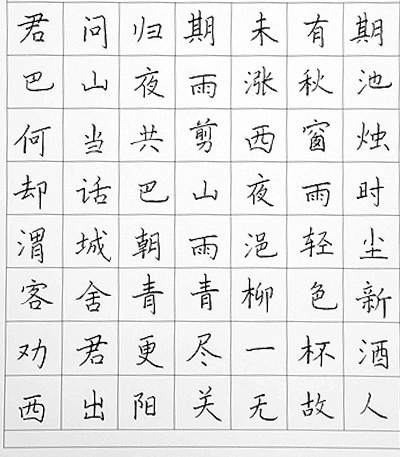 君问归期未有期
巴山夜雨涨秋池
何当共剪西窗烛
却话巴山夜雨时
渭城朝雨浥轻尘
客舍青青柳色新
劝君更尽一杯酒
西出阳关无故人